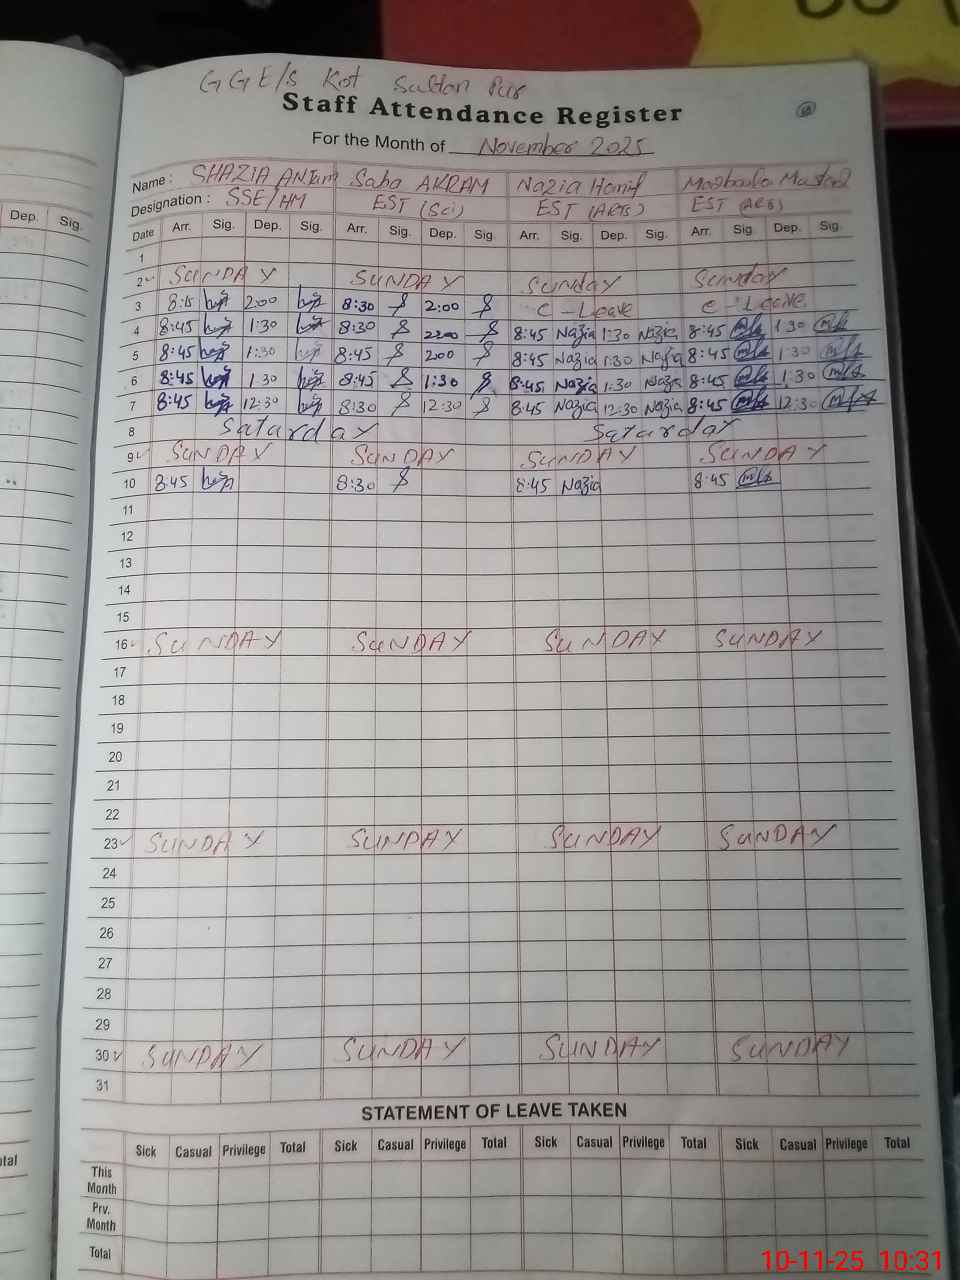 GGE/S Kot Sultan Pur
Staff Attendance Register
For the Month of November 2025
Name: SHAZIA ANJum Saba AKRAM Nazia Hanif
Designation: SSE/HM EST (Sci) EST (ARTS) EST
Dep. Sig.
Date Arr. Sig. Dep. Sig. Arr. Sig. Dep. Sig. Arr. Sig. Dep. Sig. Arr. Sig. Dep. Sig.
1
2 SUNDAY SUNDAY Sunday Sunday
3 8:15 2:00 8:30 2:00 C - Leave C - Leave
4 8:45 1:30 8:30 8:45 Nazia 1:30 Nazia 8:45 1:30
5 8:45 1:30 8:45 200 8:45 Nazia 1:30 Nazia 8:45 1:30
6 8:45 1 30 8:45 1:30 8:45 Nazia 1:30 Nazia 8:45 1:30
7 8:45 12:30 8:30 12:30 8:45 Nazia 12:30 Nazia 8:45 12:30
8 Satarday Satarday
9 SUNDAY SUNDAY SUNDAY SUNDAY
10 8:45 8:30 8:45 Nazia 8:45
11
12
13
14
15
16 SUNDAY SUNDAY SUNDAY SUNDAY
17
18
19
20
21
22
23 SUNDAY SUNDAY SUNDAY SUNDAY
24
25
26
27
28
29
30 SUNDAY SUNDAY SUNDAY SUNDAY
31
STATEMENT OF LEAVE TAKEN
Sick Casual Privilege Total Sick Casual Privilege Total Sick Casual Privilege Total Sick Casual Privilege Total
This Month
Prv. Month
Total
10-11-25 10:31